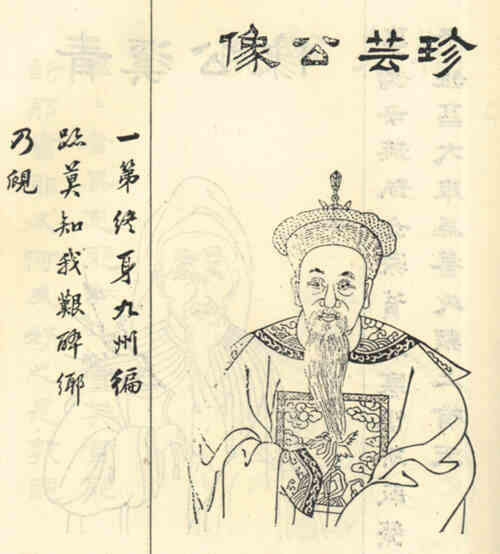 珍芸公像
一第終身九州徧
跡莫知我艱醉鄉
乃